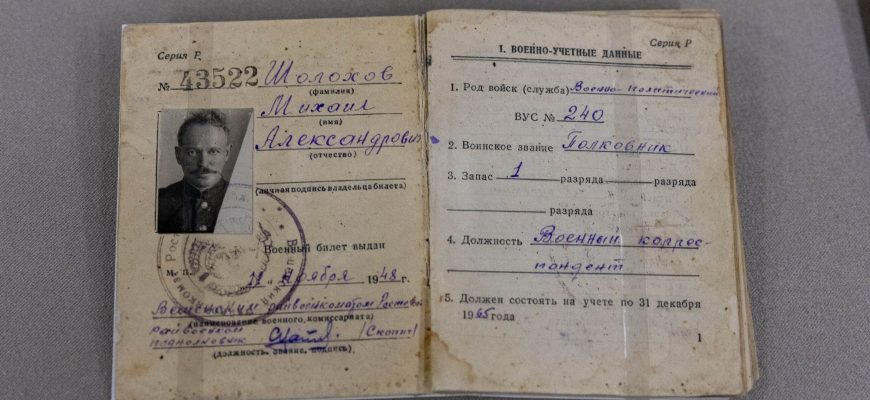 Серия Р
№ 43522 Шолохов
(фамилия)
Михаил
(имя)
Александрович
(отчество)
(личная подпись владельца билета)
Военный билет выдан
М. П. ноября 1948 г.
Вешенским райвоенкоматом
(наименование военного комиссариата)
райвоенком
подполковник (Скопит)
(должность, звание, подпись)
Серия Р
I. ВОЕННО-УЧЕТНЫЕ ДАННЫЕ
1. Род войск (служба) Военно-политический
ВУС № 240
2. Воинское звание Полковник
3. Запас 1 разряда разряда
разряда
4. Должность Военный коррес-
пондент
5. Должен состоять на учете по 31 декабря
1965 года
1